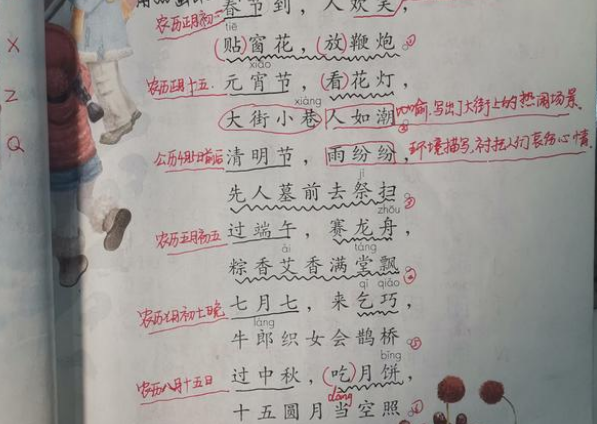 农历正月初一 春节到，人欢笑，
tiē
(贴)窗花，(放)鞭炮①
xiāo
农历正月十五 元宵节，(看)花灯，
xiàng
大街小巷人如潮② 比喻，写出了大街上的热闹场景
公历4月5日前后 清明节，雨纷纷， 环境描写，衬托人们哀伤心情
jì
先人墓前去祭扫③
zhōu
农历五月初五 过端午，赛龙舟，
ài táng
粽香艾香满堂飘④
qǐ qiǎo
农历七月初七晚 七月七，来乞巧，
láng
牛郎织女会鹊桥⑤
bǐng
农历八月十五日 过中秋，(吃)月饼，
dāng
十五圆月当空照⑥
X
Z
Q